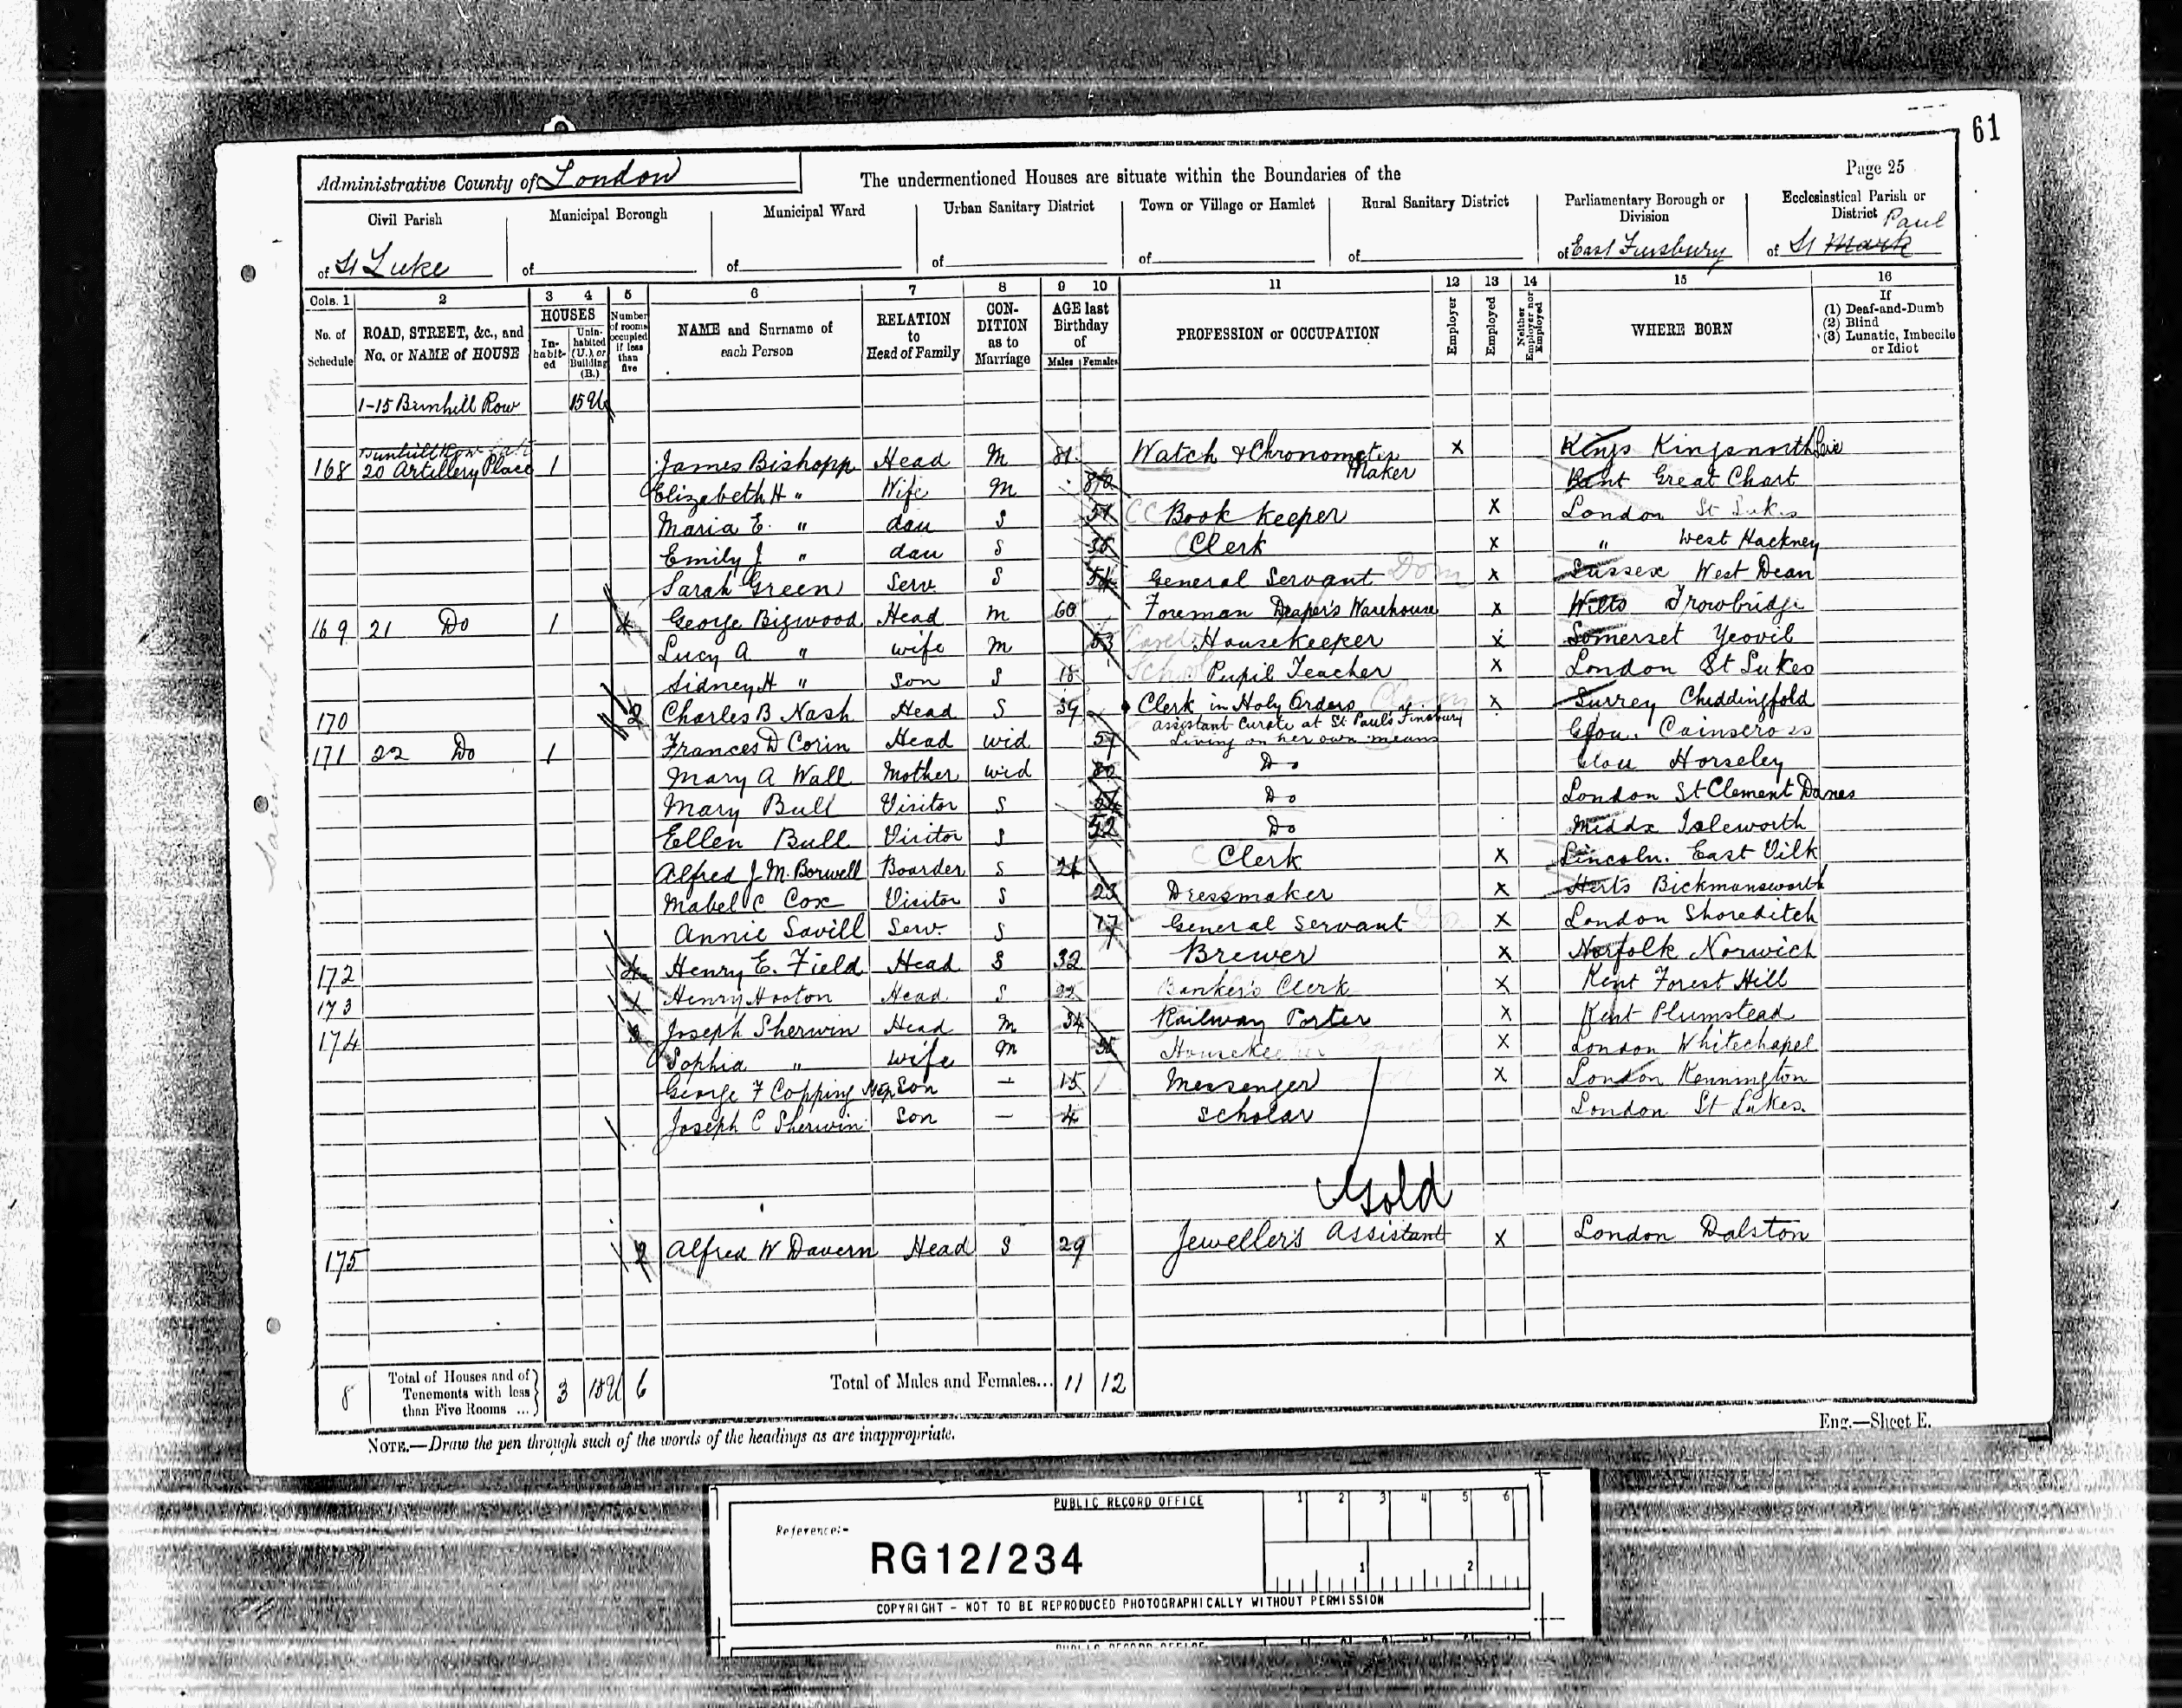 61
Administrative County of London
The undermentioned Houses are situate within the Boundaries of the
Page 25
Civil Parish
of St Luke
Municipal Borough
of
Municipal Ward
of
Urban Sanitary District
of
Town or Village or Hamlet
of
Rural Sanitary District
of
Parliamentary Borough or Division
of East Finsbury
Ecclesiastical Parish or District
of St Mark Paul
Cols. 1 2 3 4 5 6 7 8 9 10 11 12 13 14 15 16
No. of Schedule
ROAD, STREET, &c., and No. or NAME of HOUSE
HOUSES
In-habit-ed
Unin-habited (U.), or Building (B.)
Number of rooms occupied if less than five
NAME and Surname of each Person
RELATION to Head of Family
CON-DITION as to Marriage
AGE last Birthday of
Males Females
PROFESSION or OCCUPATION
Employer
Employed
Neither Employer nor Employed
WHERE BORN
If
(1) Deaf-and-Dumb
(2) Blind
(3) Lunatic, Imbecile or Idiot
1-15 Bunhill Row 15 U
Bunhill Row
168 20 Artillery Place 1 James Bishopp Head M 81 Watch & Chronometer Maker X Kings Kingsnorth
Elizabeth H " Wife M Kent Great Chart
Maria E. " dau S Book keeper X London St Lukes
Emily J " dau S Clerk X " West Hackney
Sarah Green Serv. S General Servant Dom X Sussex West Dean
169 21 Do 1 4 George Bigwood Head M 60 Foreman Draper's Warehouse X Wilts Trowbridge
Lucy A " wife M 53 Housekeeper X Somerset Yeovil
Sidney H " Son S 18 Pupil Teacher X London St Lukes
170 2 Charles B Nash Head S 39 Clerk in Holy Orders X Surrey Chiddingfold
assistant Curate at St Paul's Finsbury
171 22 Do 1 Frances D Corin Head wid 57 Living on her own means Glou. Cainscross
Mary A Wall Mother wid 80 Do Glou Horseley
Mary Bull Visitor S Do London St Clement Danes
Ellen Bull Visitor S 52 Do Middx Isleworth
Alfred J M. Borwell Boarder S 21 Clerk X Lincoln. East
Mabel C Cox Visitor S 23 Dressmaker X Herts Rickmansworth
Annie Savill Serv. S 17 General Servant X London Shoreditch
172 4 Henry E. Field Head S 32 Brewer X Norfolk Norwich
173 1 Henry Hooton Head S 22 Banker's Clerk X Kent Forest Hill
174 3 Joseph Sherwin Head M 34 Railway Porter X Kent Plumstead
Sophia " wife M Housekeeper X London Whitechapel
George F Copping Step Son — 15 Messenger X London Kennington
Joseph C Sherwin Son — 4 scholar London St Lukes.
Gold
175 2 Alfred W Davern Head S 29 Jeweller's Assistant X London Dalston
8 Total of Houses and of Tenements with less than Five Rooms ... 3 15U 6 Total of Males and Females... 11 12
Eng.—Sheet E.
NOTE.—Draw the pen through such of the words of the headings as are inappropriate.
PUBLIC RECORD OFFICE
1 2 3 4 5 6
Reference:-
RG12/234
1 2
COPYRIGHT - NOT TO BE REPRODUCED PHOTOGRAPHICALLY WITHOUT PERMISSION
PUBLIC RECORD OFFICE